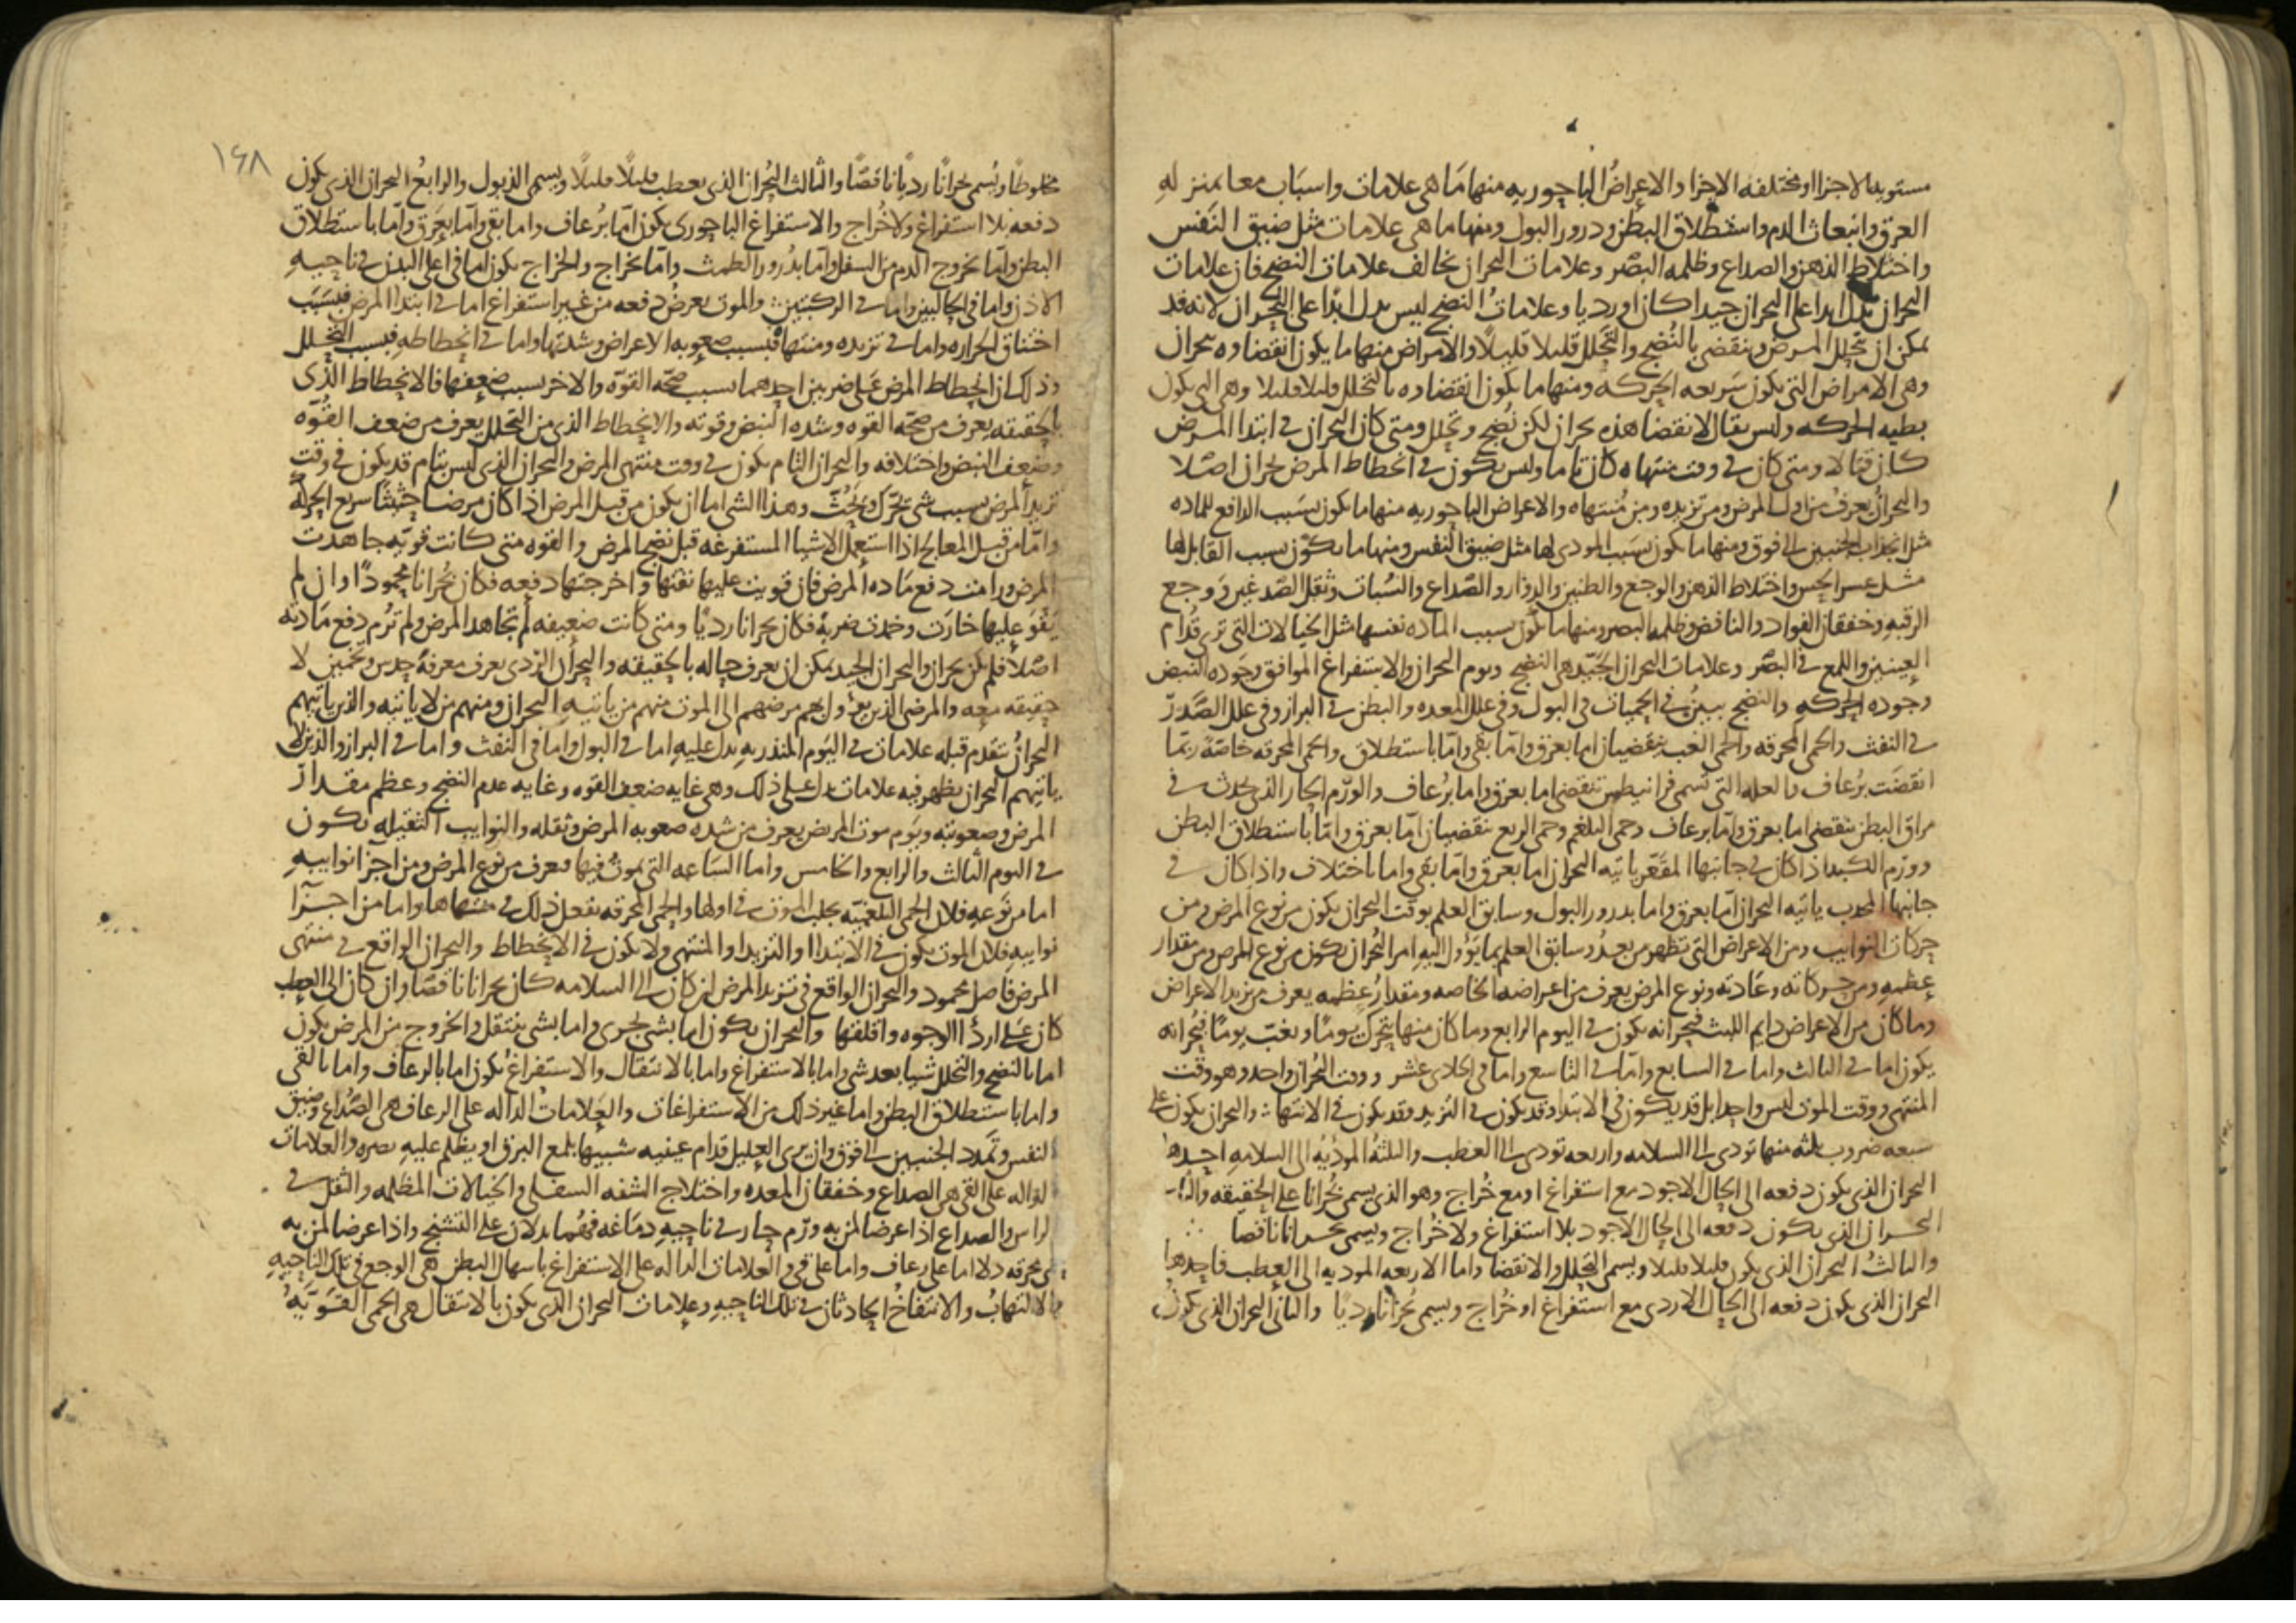 مستويه الاجزا او مختلفه الاجزا والاعراض الباحوريه منها ما هى علامات واسباب معا بمنزله
العرق وانبعاث الدم واستطلاق البطن ودرور البول ومنها ما هى علامات مثل ضيق النفس
واختلاط الذهن والصداع وظلمه البصر وعلامات البحران تخالف علامات النضج فان علامات
البحران تدل ابدا على البحران جيدا كان او رديا وعلامات النضج ليس تدل ابدا على البحران لانه قد
يمكن ان يتحلل المرض وينقضى بالنضج والتحلل قليلا قليلا والامراض منها ما يكون انقضاوه ببحران
وهى الامراض التى يكون سريعه الحركه ومنها ما يكون انقضاوه بالتحلل قليلا قليلا وهى التى يكون
بطيه الحركه وليس يقال لانقضا هذه بحران لكن نضج وتحلل ومتى كان البحران فى ابتدا المرض
كان قتالا ومتى كان فى وقت منتهاه كان تاما وليس يكون فى انحطاط المرض بحران اصلا
والبحران يعرف من اول المرض ومن تزيده ومن منتهاه والاعراض الباحوريه منها ما يكون بسبب الدافع للماده
مثل انجذاب الجنبين الى فوق ومنها ما يكون بسبب المودى لها مثل ضيق النفس ومنها ما يكون بسبب القابل لها
مثل عسر الحس واختلاط الذهن والوجع والطنين والدوار والصداع والسبات وثقل الصدغين ووجع
الرقبه وخفقان الفواد والنافض وظلمه البصر ومنها ما يكون بسبب الماده نفسها مثل الخيالات التى ترى قدام
العينين واللمع فى البصر وعلامات البحران الجيد هى النضج ويوم البحران والاستفراغ الموافق وجوده النبض
وجوده الحركه والنضج يبين فى الحميات فى البول وفى علل المعده والبطن فى البراز وفى علل الصدر
فى النفث والحمى المحرقه والحمى الغب ينقضيان اما بعرق واما بقى واما باستطلاق والحمى المحرقه خاصة ربما
انقضت برعاف والعله التى تسمى فرانيطس تنقضى اما بعرق واما برعاف والورم الحار الذى يحدث فى
مراق البطن ينقضى اما بعرق واما برعاف وحمى البلغم وحمى الربع ينقضيان اما بعرق واما باستطلاق البطن
وورم الكبد اذا كان فى جانبها المقعر ياتيه البحران اما بعرق واما بقى واما باختلاف واذا كان فى
جانبها المحدب ياتيه البحران اما بعرق واما بدرور البول وسابق العلم بوقت البحران يكون من نوع المرض ومن
حركات النوايب ومن الاعراض التى تظهر من بعد وسابق العلم بما يوول اليه امر البحران يكون من نوع المرض ومن مقدار
عظمه ومن حركاته وعادته ونوع المرض يعرف من اعراضه الخاصه ومقدار عظمه يعرف من تزيد الاعراض
وما كان من الاعراض دايم اللبث فبحرانه يكون فى اليوم الرابع وما كان منها يتحرك يوما ويغب يوما فبحرانه
يكون اما فى الثالث واما فى السابع واما فى التاسع واما فى الحادى عشر ووقت البحران واحد وهو وقت
المنتهى ووقت الموت ليس واحدا بل قد يكون فى الابتدا وقد يكون فى التزيد وقد يكون فى الانتها والبحران يكون على
سبعه ضروب ثلثه منها تودى الى السلامه واربعه تودى الى العطب والثلثه الموديه الى السلامه احدها
البحران الذى يكون دفعه الى الحال الاجود مع استفراغ او مع خراج وهو الذى يسمى بحرانا على الحقيقه
البحران الذى يكون دفعه الى الحال الاجود بلا استفراغ ولا خراج ويسمى بحرانا ناقصا
والثالث البحران الذى يكون قليلا قليلا ويسمى التحلل والانقضا واما الاربعه الموديه الى العطب فاحدها
البحران الذى يكون دفعه الى الحال الاردى مع استفراغ او خراج ويسمى بحرانا رديا والثانى البحران الذى يكون
١٦٨
مخلوطا ويسمى بحرانا رديا ناقصا والثالث البحران الذى يعطب قليلا قليلا ويسمى الذبول والرابع البحران الذى يكون
دفعه بلا استفراغ ولا خراج والاستفراغ الباحورى يكون اما برعاف واما بقى واما بعرق واما باستطلاق
البطن واما بخروج الدم من السفل واما بدرور الطمث واما بخراج والخراج يكون اما فى اعلى البدن فى ناحيه
الاذن واما فى الحالبين واما فى الركبتين والموت يعرض دفعه من غير استفراغ اما فى ابتدا المرض فبسبب
اختناق الحراره واما فى تزيده ومنتهاه فبسبب صعوبه الاعراض وشدتها واما فى انحطاطه فبسبب التحلل
وذلك ان انحطاط المرض على ضربين احدهما بسبب صحه القوه والاخر بسبب ضعفها فالانحطاط الذى
بالحقيقه يعرف من صحه القوه وشده النبض وقوته والانحطاط الذى من التحلل يعرف من ضعف القوه
وضعف النبض واختلافه والبحران التام يكون فى وقت منتهى المرض والبحران الذى ليس بتام قد يكون فى وقت
تزيد المرض بسبب شى تحرك ويحث وهذا الشى اما ان يكون من قبل المرض اذا كان مرضا خبيثا سريع الحركه
واما من قبل المعالج اذا استعمل الاشيا المستفرغه قبل نضج المرض والقوه متى كانت قويه جاهدت
المرض ورامت دفع ماده المرض فان قويت عليها نفتها واخرجتها دفعه فكان بحرانا محمودا وان لم
تقو عليها خارت وخمدت ضربة فكان بحرانا رديا ومتى كانت ضعيفه لم تجاهد المرض ولم ترم دفع مادته
اصلا فلم يكن بحران والبحران الجيد يمكن ان يعرف حاله بالحقيقه والبحران الردى يعرف معرفة حدس وتخمين لا
حقيقه معه والمرضى الذين يوول امر مرضهم الى الموت منهم من ياتيه البحران ومنهم من لا ياتيه والذين ياتيهم
البحران يتقدم قبله علامات فى اليوم المنذر به يدل عليه اما فى البول واما فى النفث واما فى البراز والذين لا
ياتيهم البحران يظهر فيه علامات تدل على ذلك وهى غايه ضعف القوه وغايه عدم النضج وعظم مقدار
المرض وصعوبته ويوم موت المريض يعرف من شده صعوبه المرض وثقله والنوايب الثقيله يكون
فى اليوم الثالث والرابع والخامس واما الساعه التى يموت فيها فتعرف من نوع المرض ومن اجزا نوايبه
اما من نوعه فلان الحمى البلغميه يجلب الموت فى اولها والحمى المحرقه تفعل ذلك فى منتهاها واما من اجزا
نوايبه فلان الموت يكون فى الابتدا والتزيد والمنتهى ولا يكون فى الانحطاط والبحران الواقع فى منتهى
المرض فاصل محمود والبحران الواقع فى تزيد المرض ان كان الى السلامه كان بحرانا ناقصا وان كان الى العطب
كان على اردا الوجوه واقلقها والبحران يكون اما بشى يجرى واما بشى ينتقل والخروج من المرض يكون
اما بالنضج والتحلل شيا بعد شى واما بالاستفراغ واما بالانتقال والاستفراغ يكون اما بالرعاف واما بالقى
واما باستطلاق البطن واما غير ذلك من الاستفراغات والعلامات الداله على الرعاف هى الصداع وضيق
النفس وتمدد الجنبين الى فوق وان يرى العليل قدام عينيه شبيها بلمع البرق او يظلم عليه بصره والعلامات
الداله على القى هى الصداع وخفقان المعده واختلاج الشفه السفلى والخيالات المظلمه والثقل فى
الراس والصداع اذا عرضا لمن به ورم حار فى ناحيه دماغه فهما يدلان على التشنج واذا عرضا لمن به
حمى محرقه دلا اما على رعاف واما على قى والعلامات الداله على الاستفراغ باسهال البطن هى الوجع فى تلك الناحيه
والالتهاب والانتفاخ الحادثان فى تلك الناحيه وعلامات البحران الذى يكون بالانتقال هى الحمى القويه